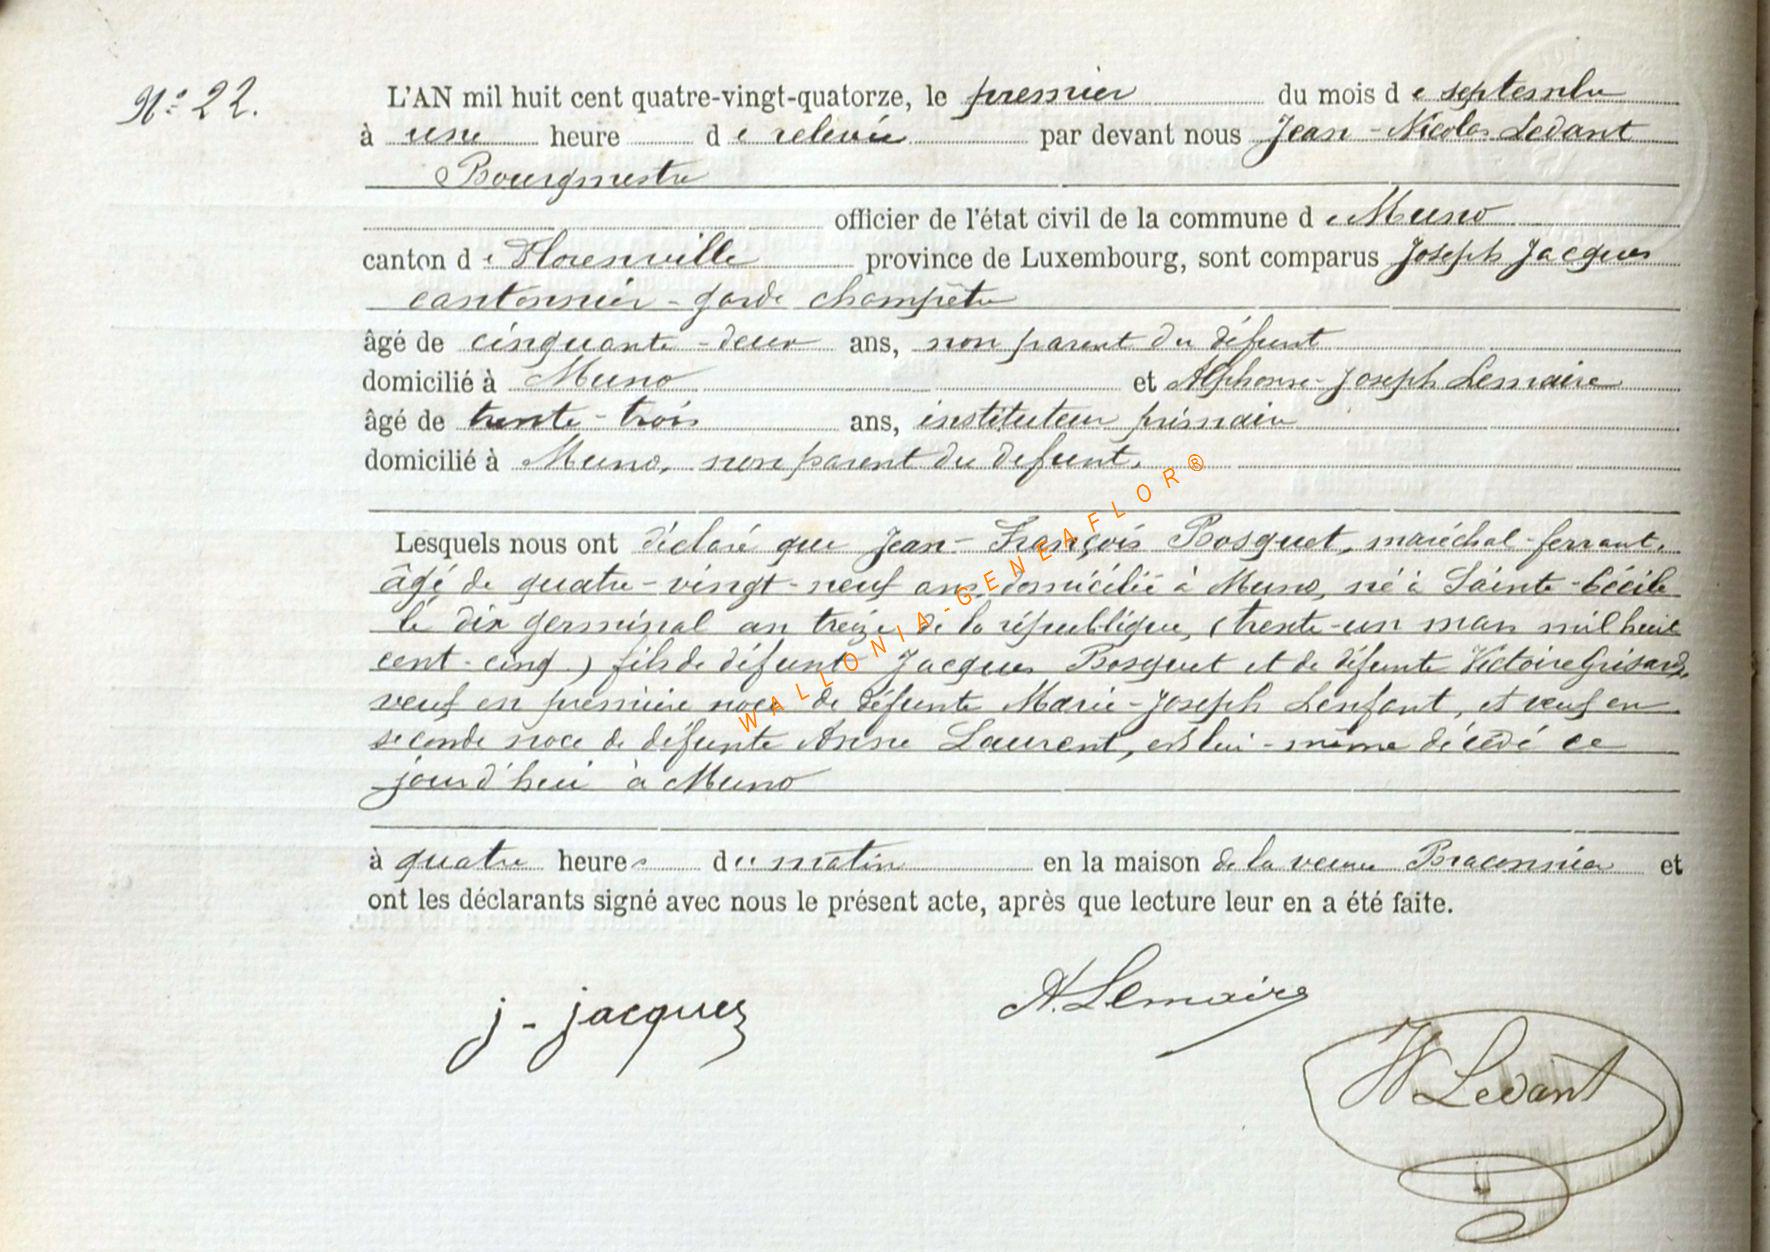 N° 22.
L'AN mil huit cent quatre-vingt-quatorze, le premier du mois de septembre
à une heure de relevée par devant nous Jean-Nicolas Ledant
Bourgmestre
officier de l'état civil de la commune de Muno
canton de Florenville province de Luxembourg, sont comparus Joseph Jacques
cantonnier-garde champêtre
âgé de cinquante-deux ans, non parent du défunt
domicilié à Muno et Alphonse-Joseph Lemaire
âgé de trente-trois ans, instituteur primaire
domicilié à Muno, non parent du defunt.
Lesquels nous ont déclaré que Jean-François Bosquet, maréchal-ferrant,
âgé de quatre-vingt-neuf ans domicilié à Muno, né à Sainte-Cécile
le dix germinal an treize de la république, (trente-un mars mil huit
cent-cinq) fils de défunt Jacques Bosquet et de défunte Victoire Grisard,
veuf en première noce de défunte Marie-Joseph Lenfant, et veuf en
seconde noce de défunte Anne Laurent, est lui-même décédé ce
jourd'hui à Muno
à quatre heures du matin en la maison de la veuve Braconnier et
ont les déclarants signé avec nous le présent acte, après que lecture leur en a été faite.
j-jacques
A. Lemaire
N Ledant
WALLONIA-GENEAFLOR®